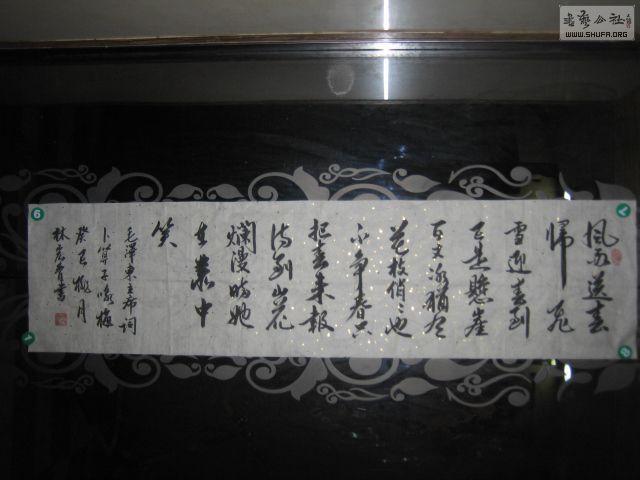 書藝公社
WWW.SHUFA.ORG
風雨送春
歸飛
雪迎春到
已是懸崖
百丈冰猶有
花枝俏〻也
不争春只
把春来報
待到山花
爛漫時她
在叢中
笑
毛澤東主席詞
卜算子咏梅
癸巳 月
林 書
6